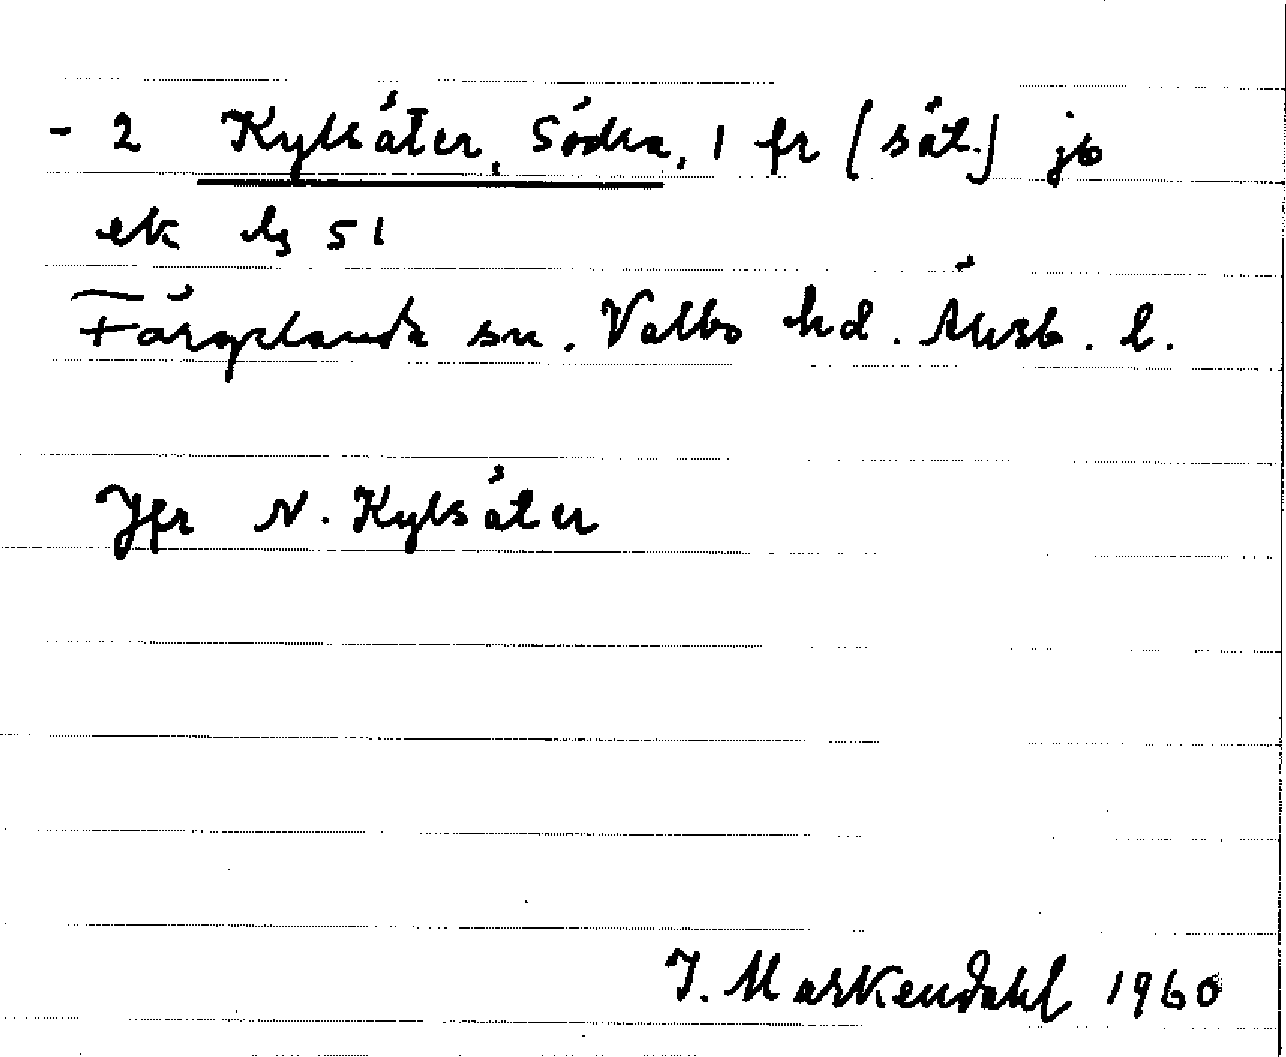 - 2 Kylsäter, Södra, 1 fr (sät.) jb
ek bg 51
Färgelanda sn. Valbo hd. Älvsb. l.
Jfr N. Kylsäter
J. Markendahl 1960